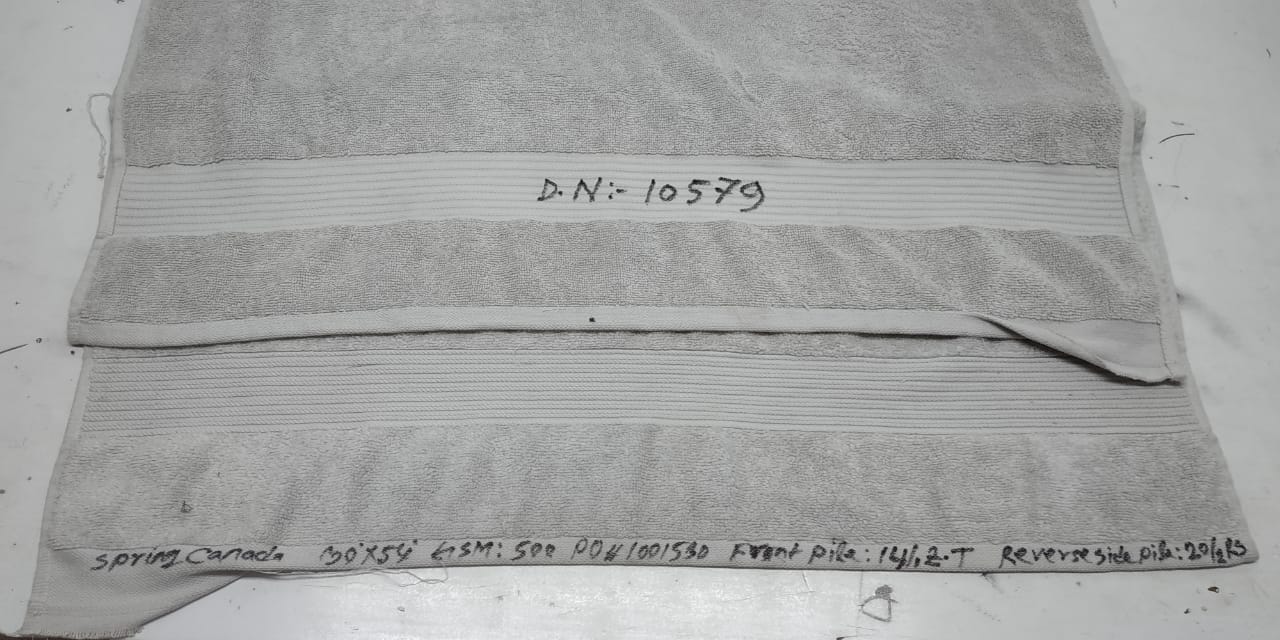 D.N:- 10579
Spring Canada 30"X54" GSM: 500 PO#1001530 Front pile: 14/1,2.T Reverse side pile: 20/2 RS